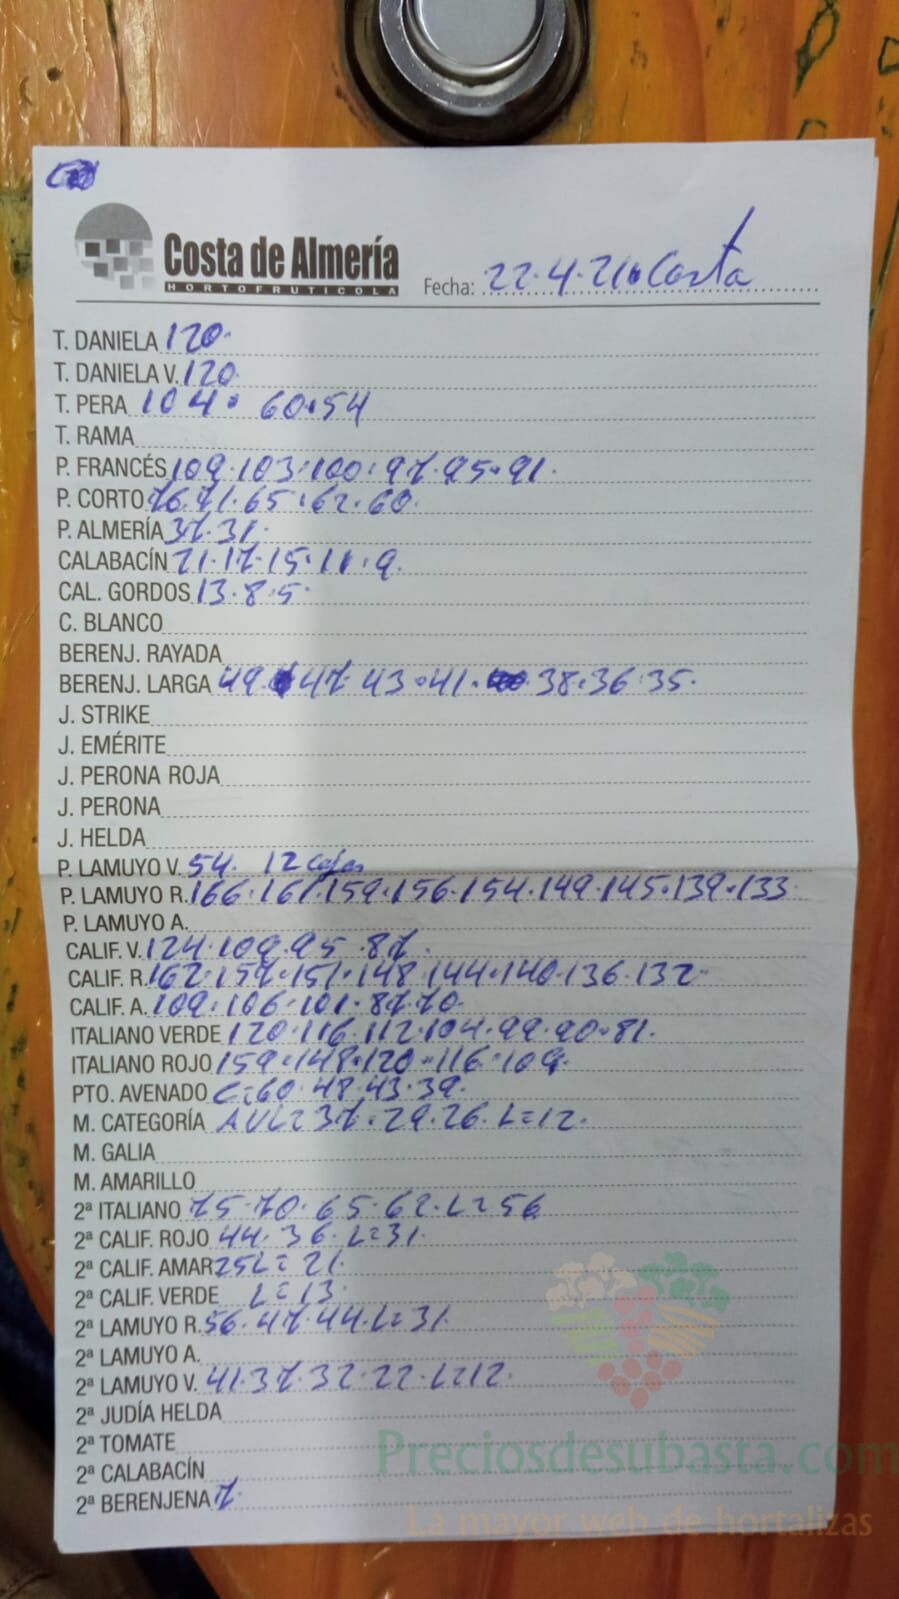 Costa de Almería
HORTOFRUTICOLA
Fecha: 22.4.21. Costa
T. DANIELA 120.
T. DANIELA V. 120.
T. PERA 104. 60.54
T. RAMA
P. FRANCÉS 109.103.100.97.95.91.
P. CORTO 76.71.65.62.60.
P. ALMERÍA 37.31.
CALABACÍN 21.17.15.11.9.
CAL. GORDOS 13.8.5.
C. BLANCO
BERENJ. RAYADA
BERENJ. LARGA 49. 47. 43.41. 38.36.35.
J. STRIKE
J. EMÉRITE
J. PERONA ROJA
J. PERONA
J. HELDA
P. LAMUYO V. 54. 12 cajas
P. LAMUYO R. 166.161.159.156.154.149.145.139.133.
P. LAMUYO A.
CALIF. V. 124.109.95.87.
CALIF. R. 162.157.151.148.144.140.136.132
CALIF. A. 109.106.101.87.70.
ITALIANO VERDE 120.116.112.104.99.90.81.
ITALIANO ROJO 159.148.120.116.109.
PTO. AVENADO C=60.48.43.39.
M. CATEGORÍA AVL=37.29.26.L=12.
M. GALIA
M. AMARILLO
2ª ITALIANO 75.70.65.62.L=56
2ª CALIF. ROJO 44.36.L=31.
2ª CALIF. AMAR 25L=21.
2ª CALIF. VERDE L=13.
2ª LAMUYO R. 56.47.44.L=31.
2ª LAMUYO A.
2ª LAMUYO V. 41.37.32.22.L=12.
2ª JUDÍA HELDA
2ª TOMATE
2ª CALABACÍN
2ª BERENJENA 7.
Preciosdesubasta.com
La mayor web de hortalizas